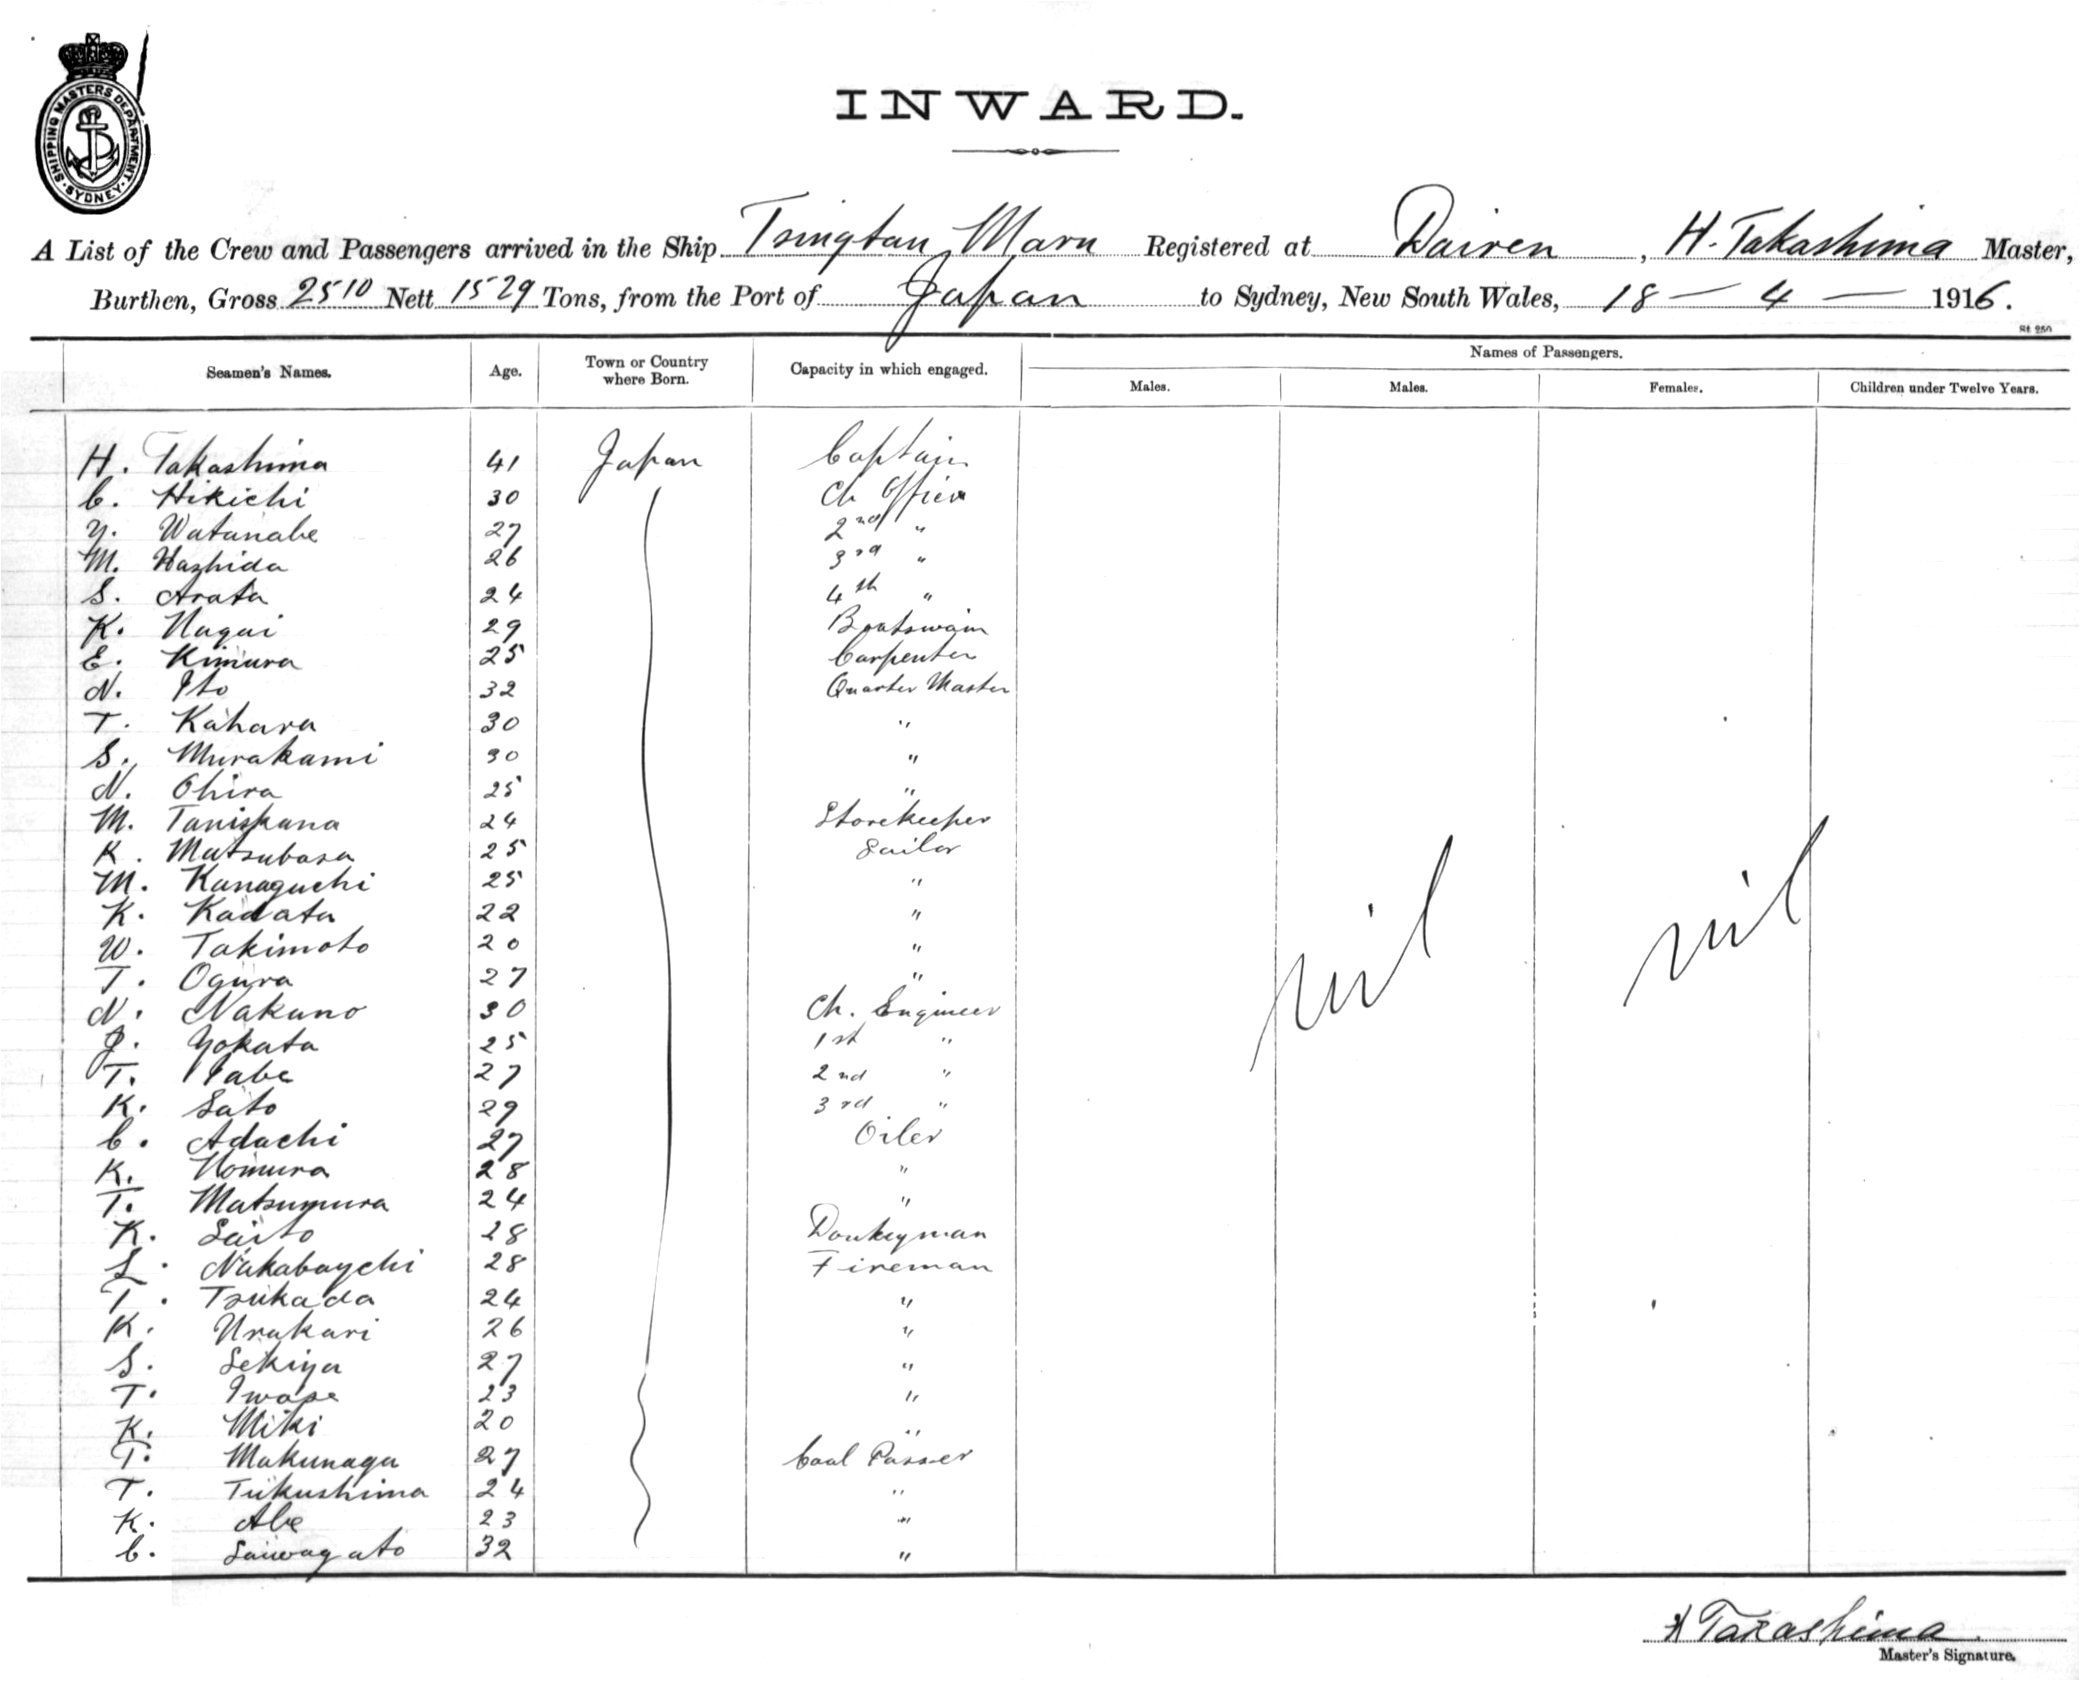 SHIPPING MASTERS DEPARTMENT. SYDNEY
INWARD.
A List of the Crew and Passengers arrived in the Ship Tsingtau Maru Registered at Dairen, H. Takashima Master,
Burthen, Gross 2510 Nett 1529 Tons, from the Port of Japan to Sydney, New South Wales, 18 — 4 — 1916.
St 250
Seamen's Names. Age. Town or Country where Born. Capacity in which engaged. Names of Passengers.
Males. Males. Females. Children under Twelve Years.
H. Takashima 41 Japan Captain
C. Hikichi 30 Ch Officer
Y. Watanabe 27 2nd "
M. Hashida 26 3rd "
S. Arata 24 4th "
K. Nagai 29 Boatswain
E. Kimura 25 Carpenter
N. Ito 32 Quarter Master
T. Kahara 30 "
S. Murakami 30 "
N. Ohira 25 "
M. 24 Storekeeper
K. Matsubara 25 Sailor
M. Kanaguchi 25 "
K. Kadata 22 "
W. Takimoto 20 "
T. Ogura 27 "
N. Nakano 30 Ch. Engineer
J. Yokata 25 1st "
T. 27 2nd "
K. Sato 29 3rd "
C. Adachi 27 Oiler
K. Nomura 28 "
T. Matsumura 24 "
K. Saito 28 Donkeyman
S. Nakabaychi 28 Fireman
T. Tsukada 24 "
K. Urakari 26 "
S. Sekiya 27 "
T. Iwase 23 "
K. Miki 20 "
T. Makunaga 27 Coal Passer
T. Tukushima 24 "
K. Abe 23 "
C. 32 "
nil nil
H Takashima
Master's Signature.